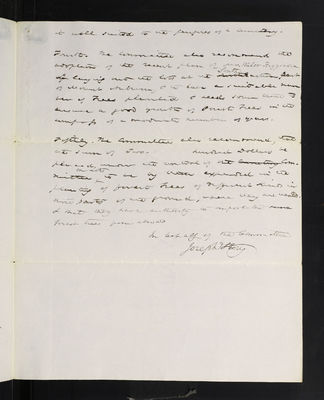 is well suited to the purposes of a cemetery.
Fourth. The Committee also recommend the
adoption of the recent plan of
laying out the lots at the
of Mount Auburn, & to have a suitable num
ber of Trees planted
ensure a good growth of Forest Trees in the
of a moderate number of years.
Fifthly. The Committee also recommend, that
the sum of Two hundred Dollars be
placed under the control of the Com
mittee to be by them expended in the
planting of Forest Trees of different kinds in
those parts of the ground, where they are needed
& that they have authority to import some
Forest trees from abroad
In behalf of the Committee
Joseph Story